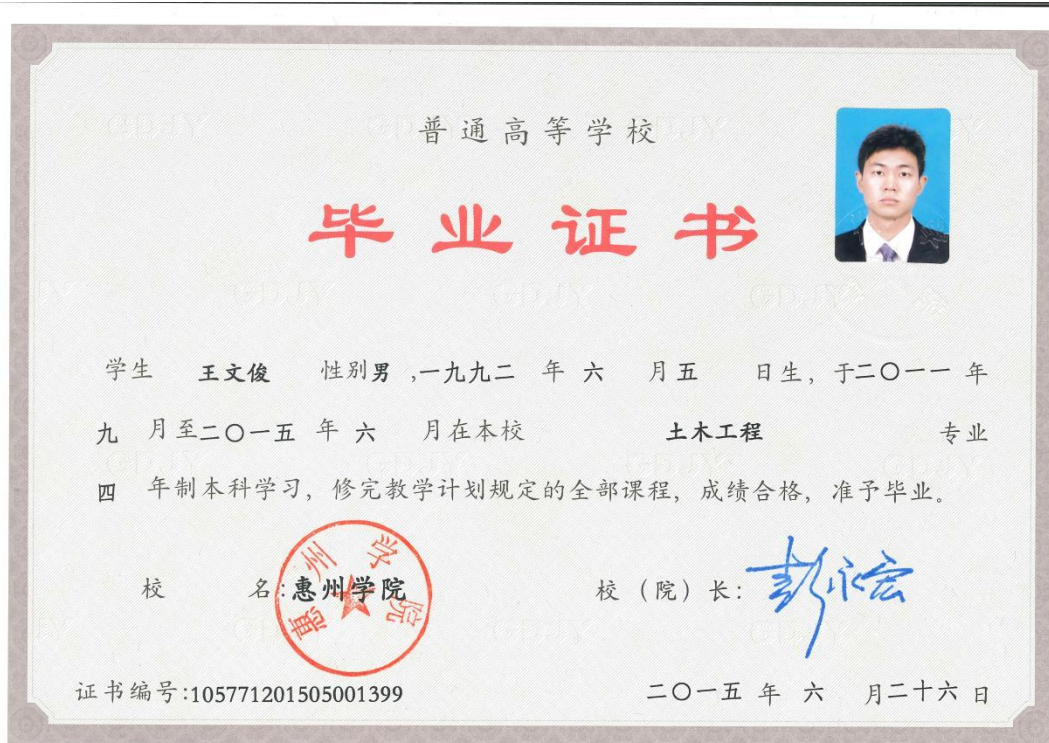 普通高等学校
毕业证书
学生 王文俊 性别男,一九九二 年 六 月五 日生,于二〇一一 年
九 月至二〇一五 年 六 月在本校 土木工程 专业
四 年制本科学习,修完教学计划规定的全部课程,成绩合格,准予毕业。
校 名:惠州学院
惠州学院
校(院)长:彭永宏
证书编号:105771201505001399
二〇一五 年 六 月二十六日
GDJY